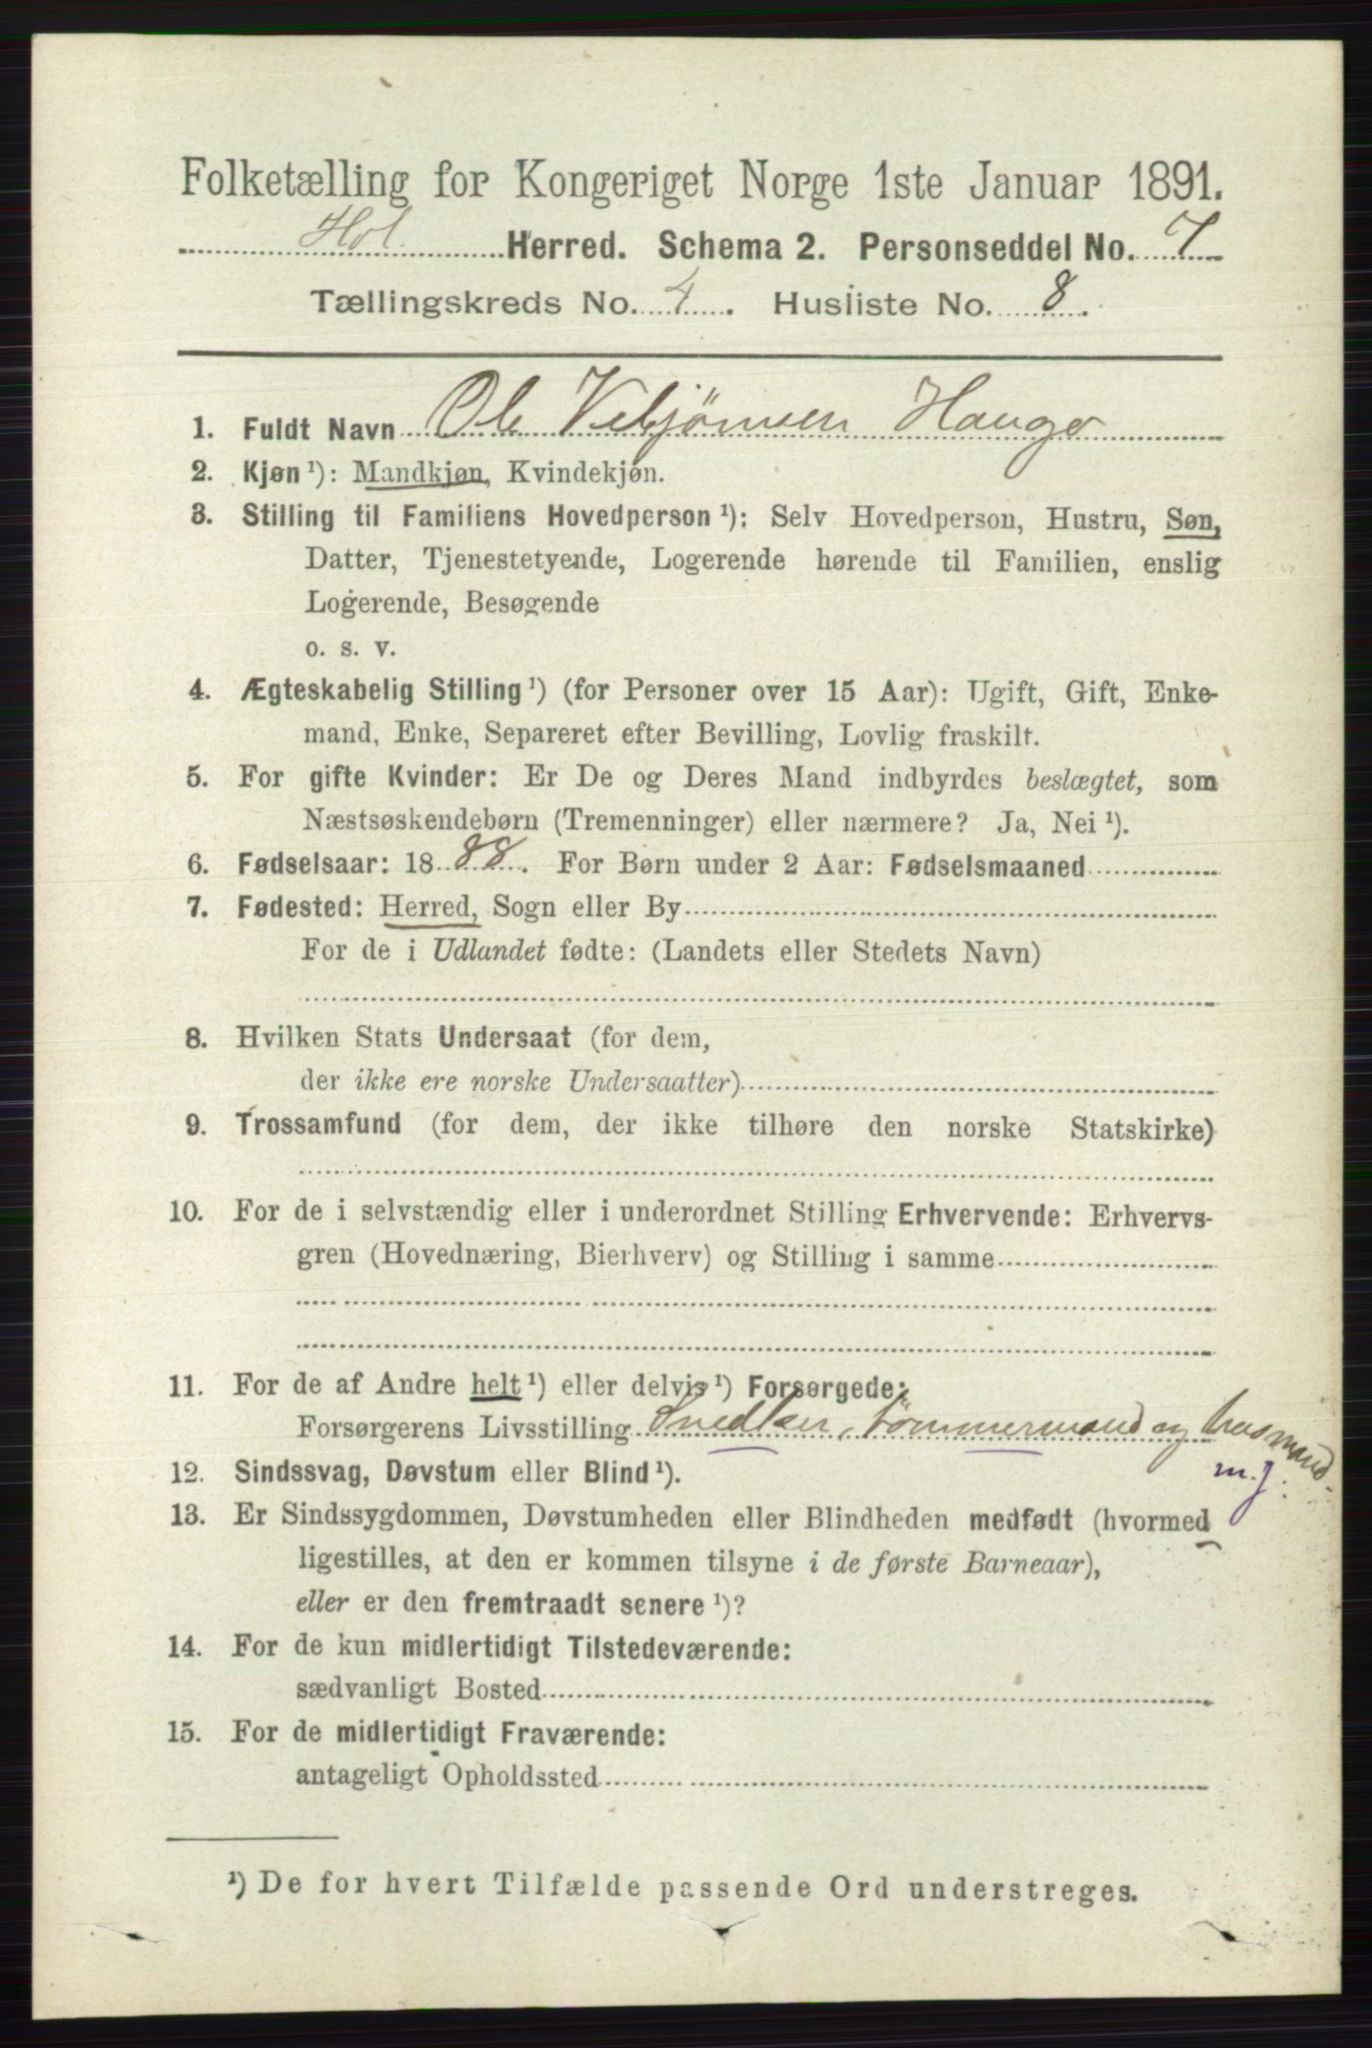 Folketælling for Kongeriget Norge 1ste Januar 1891.
Hol Herred. Schema 2. Personseddel No. 7
Tællingskreds No. 4. Husliste No. 8.
1. Fuldt Navn Ole Vebjønsen Hauge
2. Kjøn ¹): Mandkjøn, Kvindekjøn.
3. Stilling til Familiens Hovedperson ¹): Selv Hovedperson, Hustru, Søn,
Datter, Tjenestetyende, Logerende hørende til Familien, enslig
Logerende, Besøgende
o. s. v.
4. Ægteskabelig Stilling ¹) (for Personer over 15 Aar): Ugift, Gift, Enke-
mand, Enke, Separeret efter Bevilling, Lovlig fraskilt.
5. For gifte Kvinder: Er De og Deres Mand indbyrdes beslægtet, som
Næstsøskendebørn (Tremenninger) eller nærmere? Ja, Nei ¹).
6. Fødselsaar: 1888. For Børn under 2 Aar: Fødselsmaaned
7. Fødested: Herred, Sogn eller By
For de i Udlandet fødte: (Landets eller Stedets Navn)
8. Hvilken Stats Undersaat (for dem,
der ikke ere norske Undersaatter)
9. Trossamfund (for dem, der ikke tilhøre den norske Statskirke)
10. For de i selvstændig eller i underordnet Stilling Erhvervende: Erhvervs-
gren (Hovednæring, Bierhverv) og Stilling i samme
11. For de af Andre helt ¹) eller delvis ¹) Forsørgede:
Forsørgerens Livsstilling Snedker, tømmermand og husmand
m. j.
12. Sindssvag, Døvstum eller Blind ¹).
13. Er Sindssygdommen, Døvstumheden eller Blindheden medfødt (hvormed
ligestilles, at den er kommen tilsyne i de første Barneaar),
eller er den fremtraadt senere ¹)?
14. For de kun midlertidigt Tilstedeværende:
sædvanligt Bosted
15. For de midlertidigt Fraværende:
antageligt Opholdssted
¹) De for hvert Tilfælde passende Ord understreges.